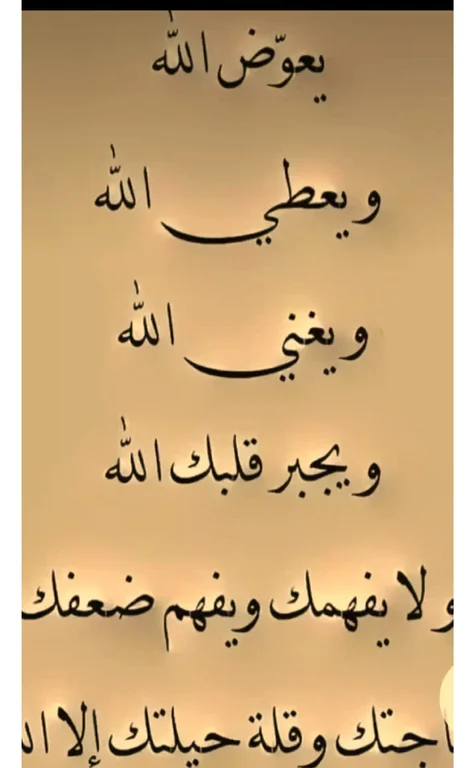 يعوّض الله
و يعطي الله
و يغني الله
و يجبر قلبك الله
و لا يفهمك ويفهم ضعفك
وقلة حيلتك إلا